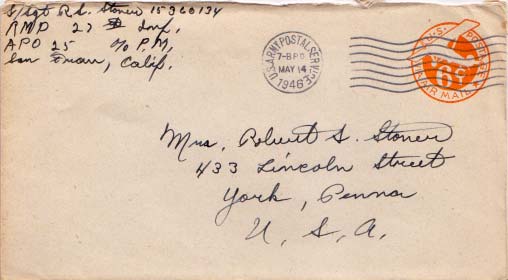 S/sgt R.S. Stoner 15360134
RMD 27 Inf.
APO 25 c/o P.M,
San Fran, Calif.
U.S. ARMY POSTAL SERVICE
7-8 PM
MAY 14
1946
U.S. POSTAGE
6¢
AIR MAIL
Mrs. Robert S. Stoner
433 Lincoln Street
York, Penna
U. S. A.